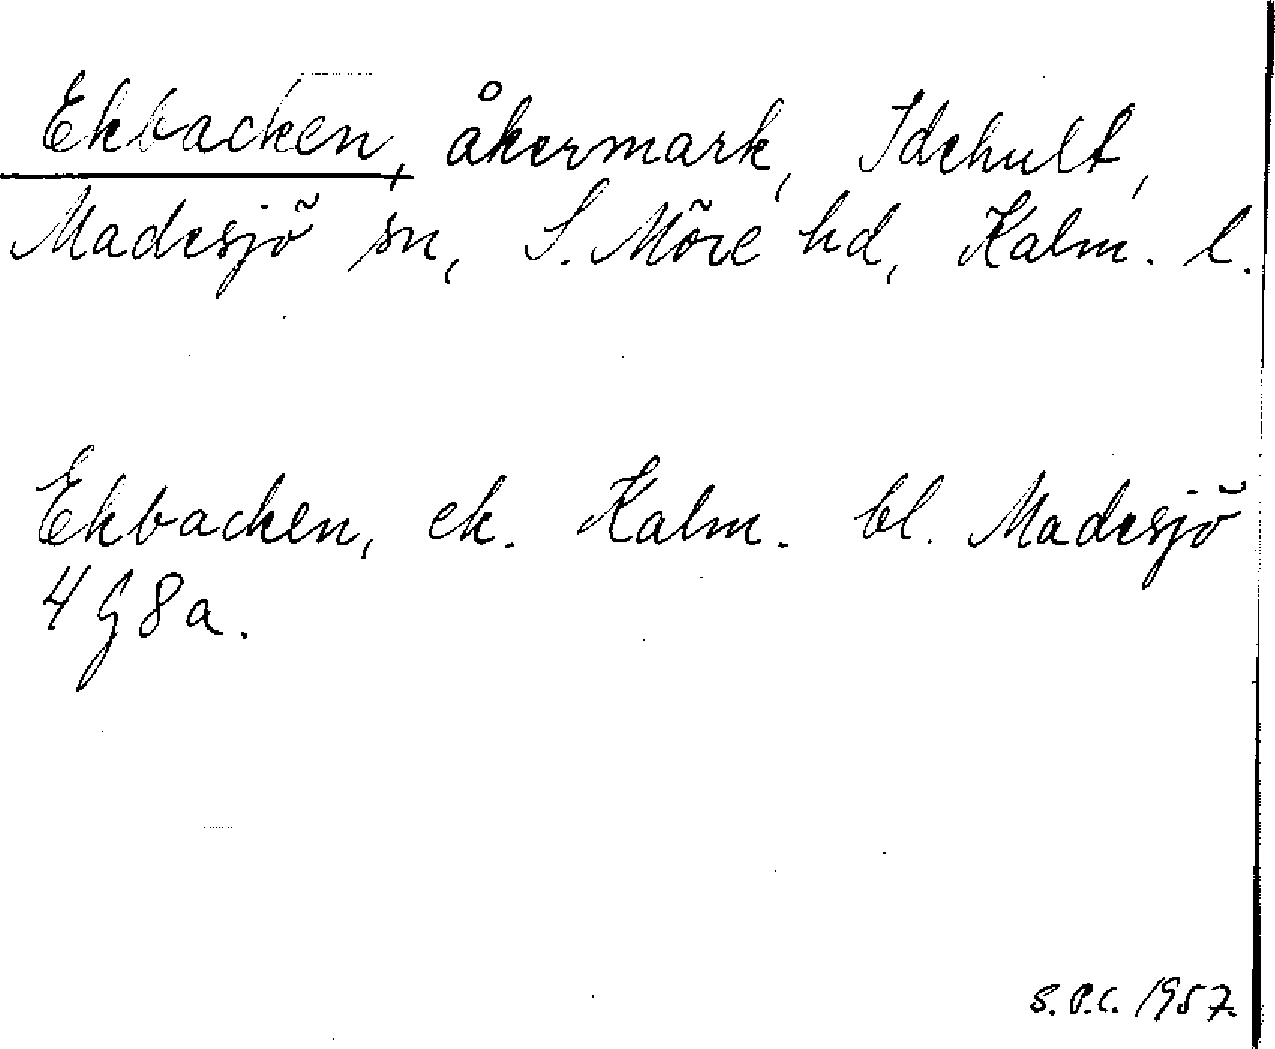 Ekbacken, åkermark, Idehult,
Madesjö sn, S. Möre hd, Kalm. l.
Ekbacken, ek. Kalm. bl. Madesjö
4 G 8a.
S.P.C. 1957.